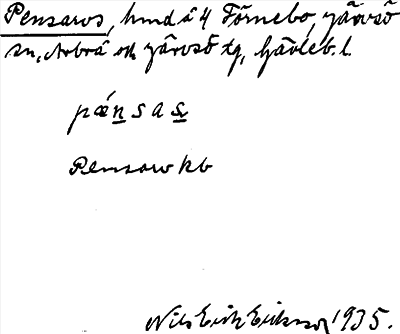 Pensaros, hmd å 4 Förnebo, Järvsö
sn, Arbrå och Järvsö tg, Gävleb. l.
pǽnsas
Pensaro kb
Nils Erik Eriksson 1935.